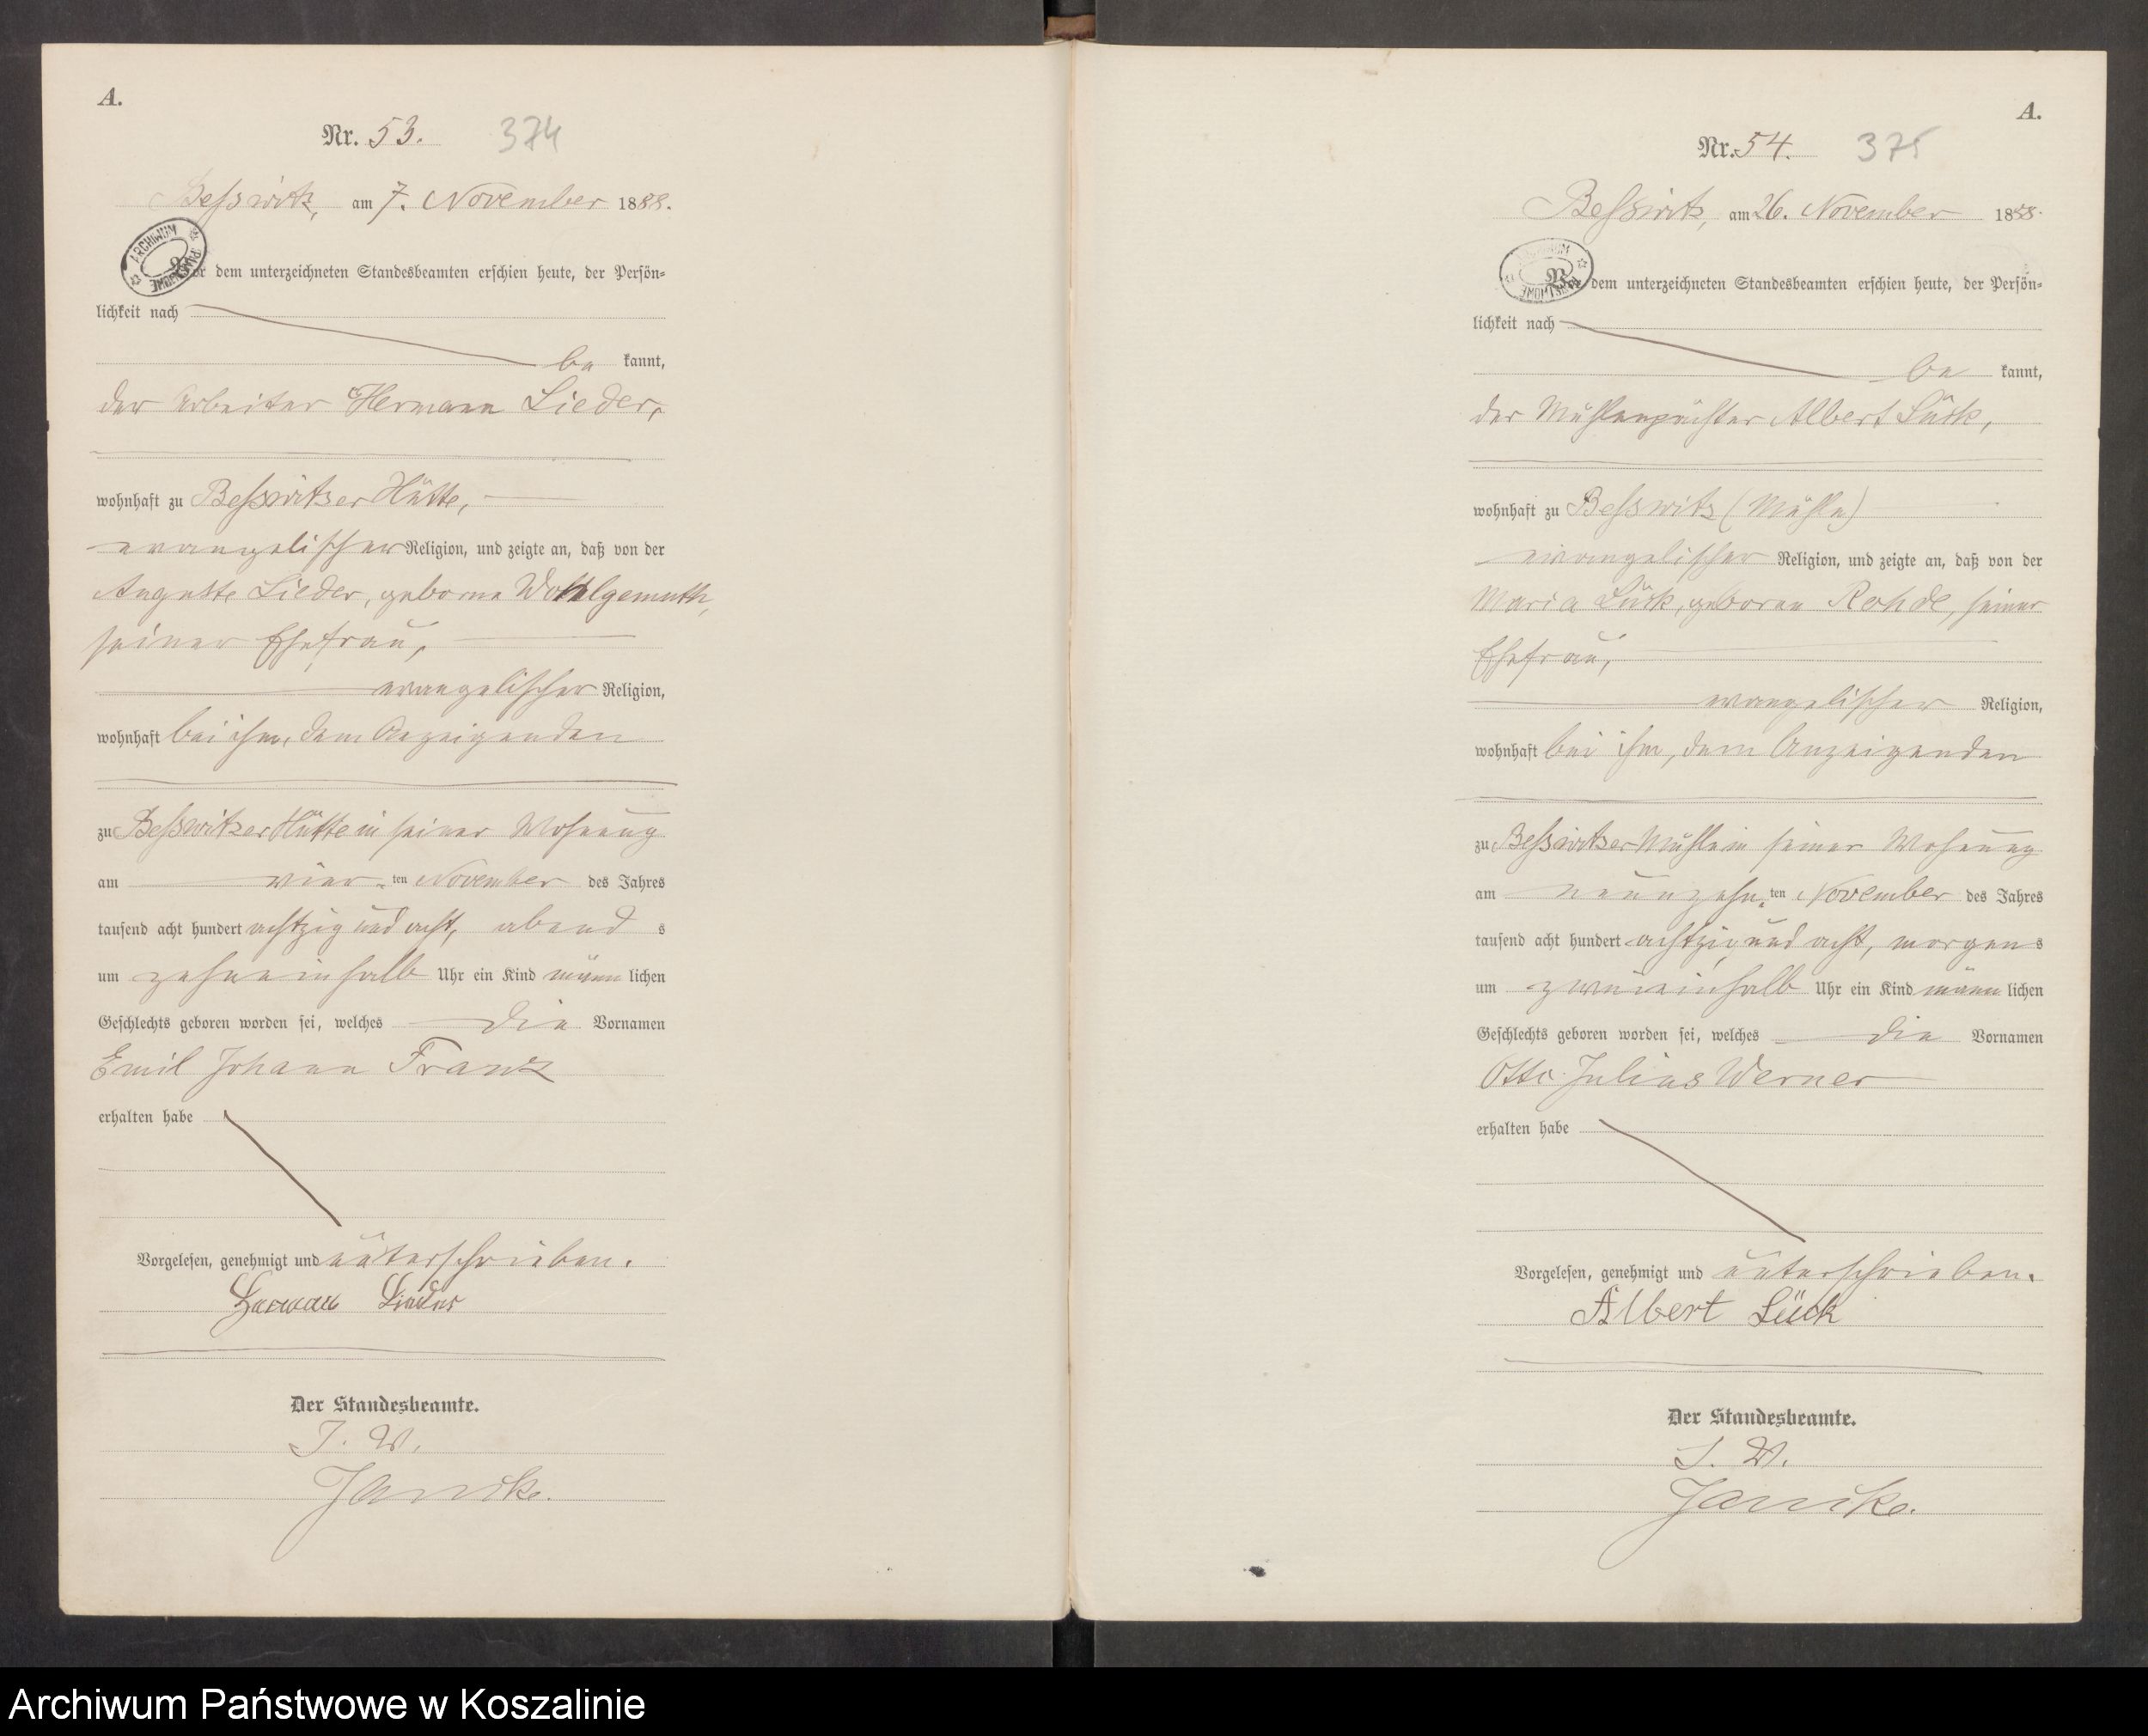 A.
Nr. 53. 374
Besswitz, am 7. November 1888.
ARCHIWUM
Vor dem unterzeichneten Standesbeamten erschien heute, der Persön-
lichkeit nach
be kannt,
der Arbeiter Hermann Lieder,
wohnhaft zu Besswitzer Hütte,
evangelischer Religion, und zeigte an, daß von der
Auguste Lieder, geborne Wohlgemuth,
seiner Ehefrau,
evangelischer Religion,
wohnhaft bei ihm, dem Anzeigenden
zu Besswitzer Hütte in seiner Wohnung
am vier-ten November des Jahres
tausend acht hundert achtzig und acht, abend s
um zehneinhalb Uhr ein Kind männ lichen
Geschlechts geboren worden sei, welches die Vornamen
Emil Johann Franz
erhalten habe
Vorgelesen, genehmigt und unterschrieben.
Herman Lieder
Der Standesbeamte.
J. V.
Janicke.
A.
Nr. 54. 375
Besswitz, am 26. November 1888.
Vor dem unterzeichneten Standesbeamten erschien heute, der Persön-
lichkeit nach
be kannt,
der Mühlenpächter Albert Lück,
wohnhaft zu Besswitz (Mühle)
evangelischer Religion, und zeigte an, daß von der
Maria Lück, geboren Rohde, seiner
Ehefrau,
evangelischer Religion,
wohnhaft bei ihm, dem Anzeigenden
zu Besswitzer Mühle in seiner Wohnung
am neunzehn-ten November des Jahres
tausend acht hundert achtzig und acht, morgen s
um zweieinhalb Uhr ein Kind männ lichen
Geschlechts geboren worden sei, welches die Vornamen
Otto Julius Werner
erhalten habe
Vorgelesen, genehmigt und unterschrieben.
Albert Lück
Der Standesbeamte.
J. V.
Janicke.
Archiwum Państwowe w Koszalinie